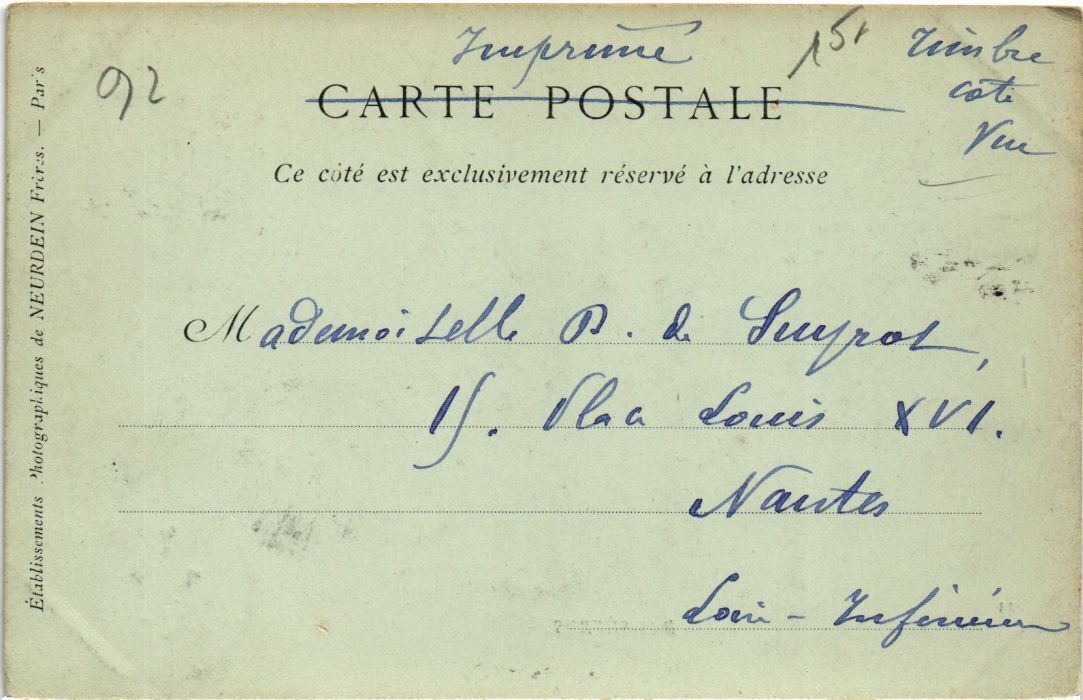 Imprimé
15f
Timbre
côté
Vue
92
CARTE POSTALE
Ce côté est exclusivement réservé à l'adresse
Mademoiselle B. de Suyrot,
15. Place Louis XVI.
Nantes
Loire-Inférieure
Établissements Photographiques de NEURDEIN Frères. — Paris